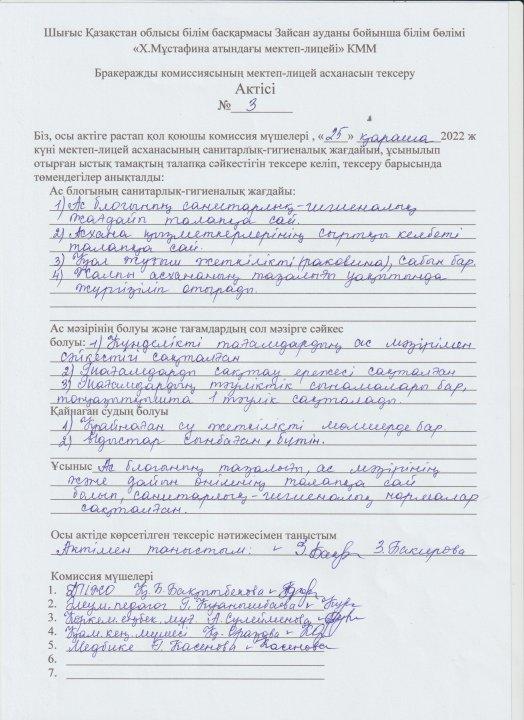 Шығыс Қазақстан облысы білім басқармасы Зайсан ауданы бойынша білім бөлімі
«Х.Мұстафина атындағы мектеп-лицейі» КММ
Бракеражды комиссиясының мектеп-лицей асханасын тексеру
Актісі
№ 3
Біз, осы актіге растап қол қоюшы комиссия мүшелері , « 25 » қараша 2022 ж
күні мектеп-лицей асханасының санитарлық-гигиеналық жағдайын, ұсынылып
отырған ыстық тамақтың талапқа сәйкестігін тексере келіп, тексеру барысында
төмендегілер анықталды:
Ас блогының санитарлық-гигиеналық жағдайы:
1) Ас блогының санитарлық-гигиеналық
жағдайы талапқа сай.
2) Асхана қызметкерлерінің сыртқы келбеті
талапқа сай.
3) Қол жуғыш жеткілікті (раковина), сабын бар.
4) Жалпы асхананың тазалығы уақытында
жүргізіліп отырады.
Ас мәзірінің болуы және тағамдардың сол мәзірге сәйкес
болуы: 1) Күнделікті тағамдардың ас мәзірімен
сәйкестігі сақталған
2) Тағамдарды сақтау ережесі сақталған
3) Тағамдардың тәуліктік сынамалары бар,
тоңазытқышта 1 тәулік сақталады.
Қайнаған судың болуы
1) Қайнаған су жеткілікті мөлшерде бар.
2) Ыдыстар сынбаған, бүтін.
Ұсыныс Ас блогының тазалығы, ас мәзірінің
және дайын өнімнің талапқа сай
болып, санитарлық-гигиеналық нормалар
сақталған.
Осы актіде көрсетілген тексеріс нәтижесімен таныстым
Актімен таныстым: З.Бакирова
Комиссия мүшелері
1. ДТІЖО Қ.Б.Бақытбекова
2. Әлеум.педагог Г.
3. Көркем.еңбек.мұғ. А.Сулейменова
4. Қам.кең.мүшесі Қ.
5. Медбике Г.Касенова Касенова
6.
7.